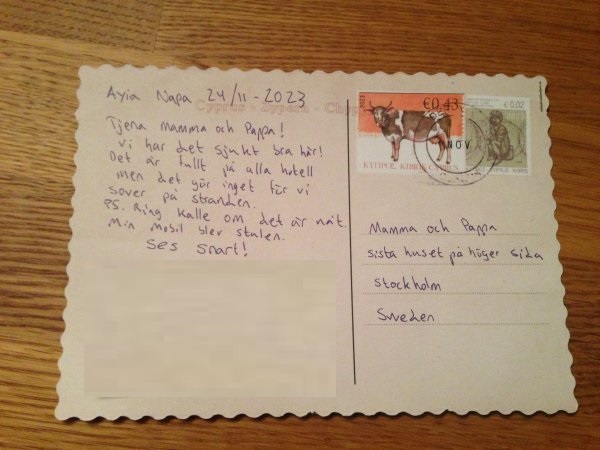 Ayia Napa 24/11-2023
Cyprus
Tjena mamma och Pappa!
Vi har det sjukt bra här!
Det är fullt på alla hotell
men det gör inget för vi
sover på stranden.
PS. Ring Kalle om det är nåt.
Min mobil blev stulen.
Ses snart!
2023
€0,43
ΚΥΠΡΟΣ KIBRIS CYPRUS
€ 0,02
NOV
Mamma och Pappa
sista huset på höger sida
Stockholm
Sweden